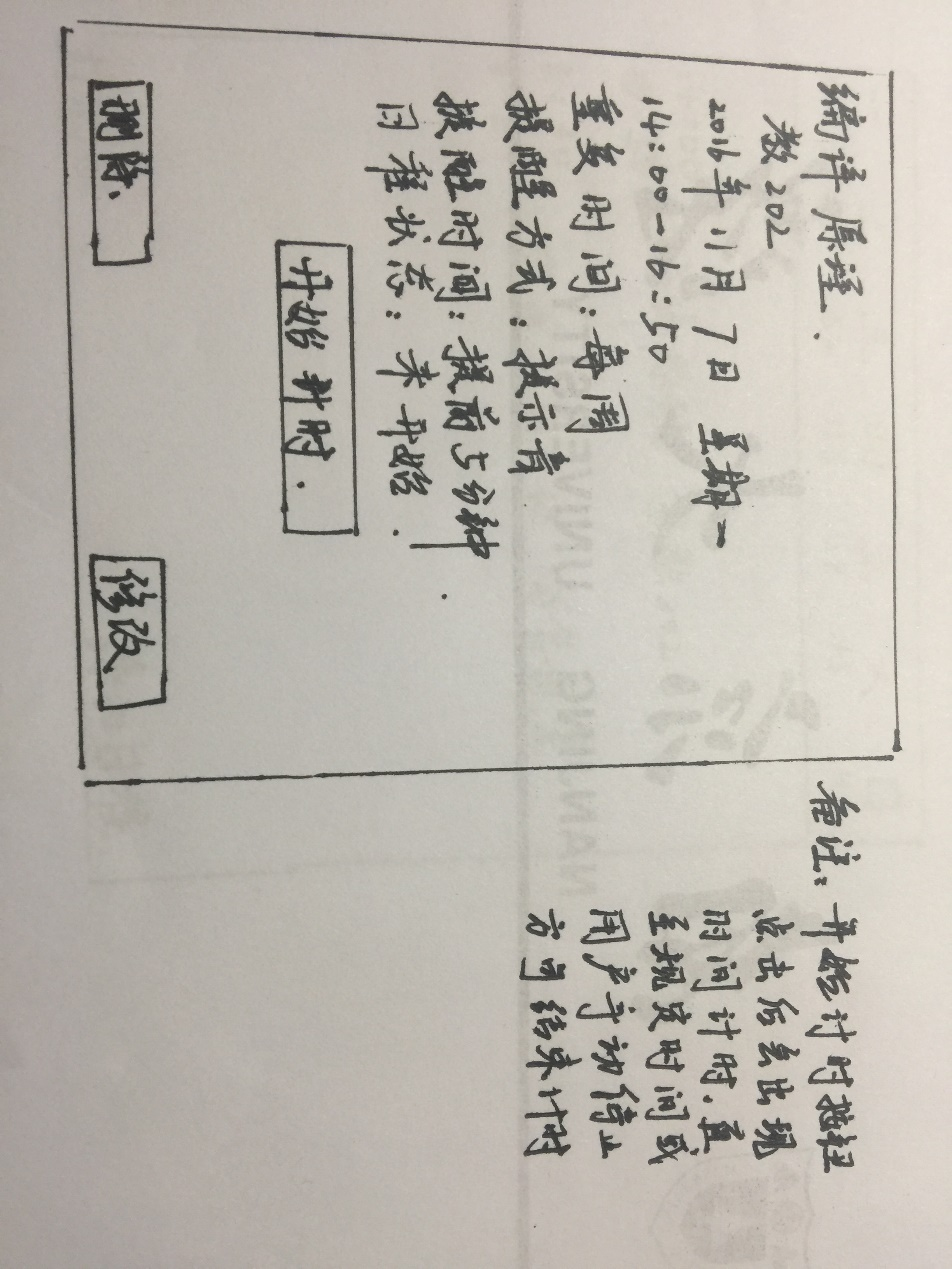 编译原理.
教202
2016年11月7日 星期一
14:00-16:50
重复时间:每周
提醒方式:提示音
提醒时间:提前5分钟
日程状态:未开始.
开始计时.
删除.
修改
备注:开始计时按钮
点击后会出现
时间计时.直
至规定时间或
用户手动停止
方可结束计时